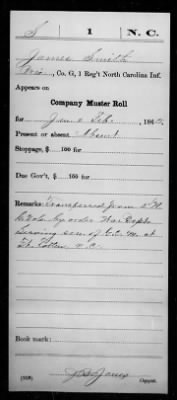 S | 1 | N.C.
James Smith
Pvt, Co. G, 1 Reg't North Carolina Inf.
Appears on
Company Muster Roll
for Jan & Feb, 186
Present or absent: Absent
Stoppage, $ 100 for
Due Gov't, $ 100 for
Remarks: Transferred from
by order War Dept
Serving sen of G.C.M. at
Ft. Totten, N.C.
Book mark:
(359)
Copyist.